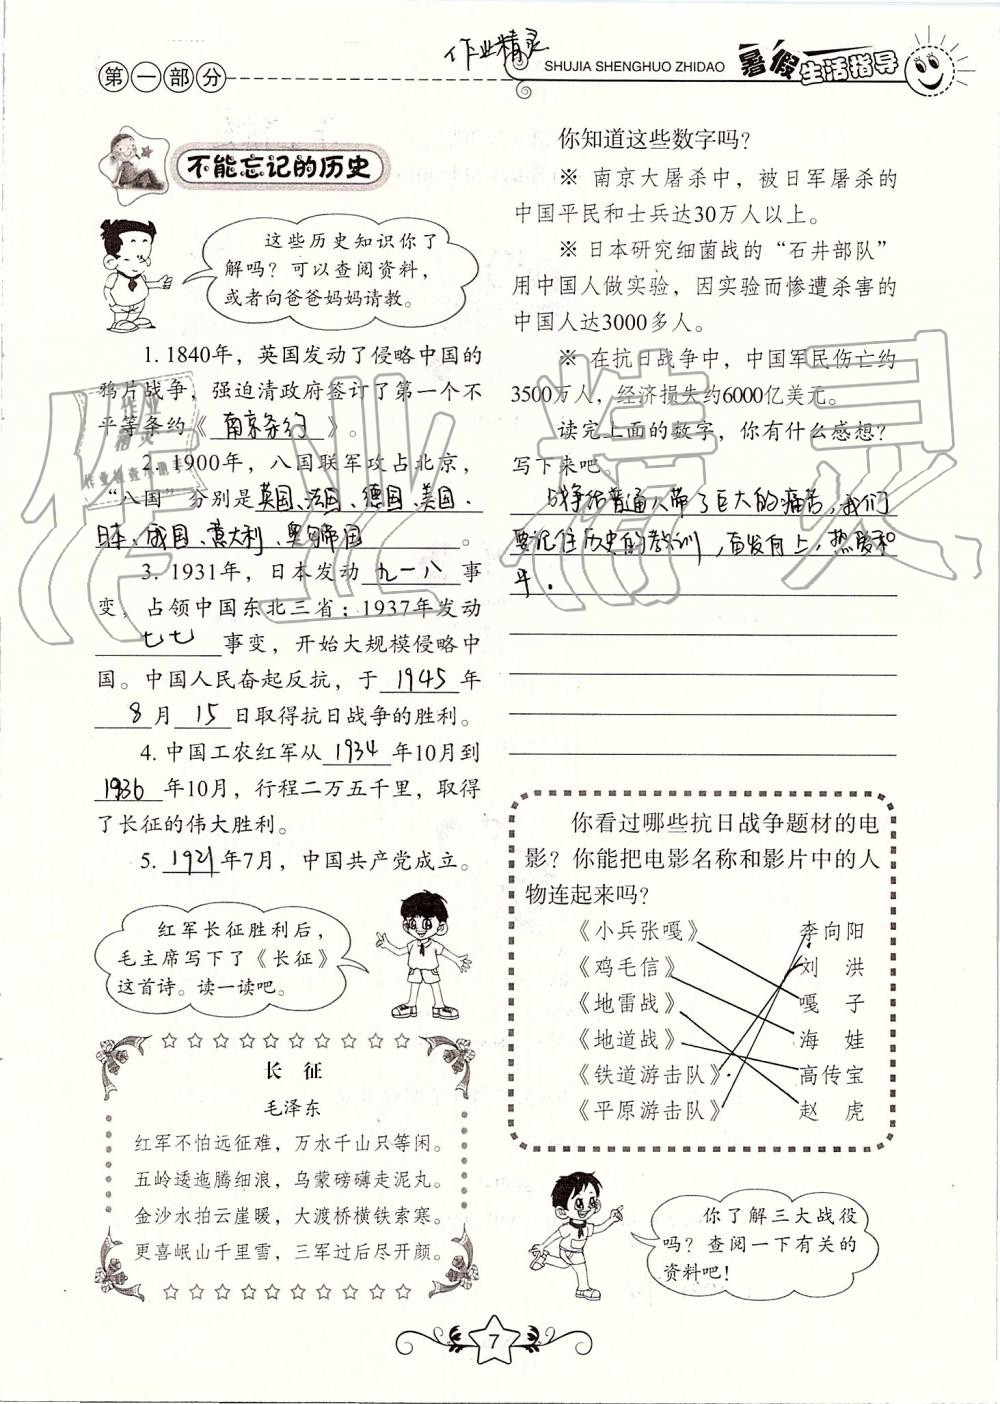 第一部分
作业精灵
SHUJIA SHENGHUO ZHIDAO
暑假生活指导
不能忘记的历史
这些历史知识你了
解吗？可以查阅资料，
或者向爸爸妈妈请教。
1. 1840年，英国发动了侵略中国的
鸦片战争，强迫清政府签订了第一个不
平等条约《 南京条约 》。
2. 1900年，八国联军攻占北京，
“八国”分别是英国、法国、德国、美国、
日本、俄国、意大利、奥匈帝国。
3. 1931年，日本发动 九一八 事
变，占领中国东北三省；1937年发动
七七 事变，开始大规模侵略中
国。中国人民奋起反抗，于 1945 年
8 月 15 日取得抗日战争的胜利。
4. 中国工农红军从 1934 年10月到
1936 年10月，行程二万五千里，取得
了长征的伟大胜利。
5. 1921 年7月，中国共产党成立。
红军长征胜利后，
毛主席写下了《长征》
这首诗。读一读吧。
长 征
毛泽东
红军不怕远征难，万水千山只等闲。
五岭逶迤腾细浪，乌蒙磅礴走泥丸。
金沙水拍云崖暖，大渡桥横铁索寒。
更喜岷山千里雪，三军过后尽开颜。
你知道这些数字吗？
※ 南京大屠杀中，被日军屠杀的
中国平民和士兵达30万人以上。
※ 日本研究细菌战的“石井部队”
用中国人做实验，因实验而惨遭杀害的
中国人达3000多人。
※ 在抗日战争中，中国军民伤亡约
3500万人，经济损失约6000亿美元。
读完上面的数字，你有什么感想？
写下来吧。
战争给普通人带了巨大的痛苦，我们
要记住历史的教训，奋发向上，热爱和
平.
你看过哪些抗日战争题材的电
影？你能把电影名称和影片中的人
物连起来吗？
《小兵张嘎》 李向阳
《鸡毛信》 刘 洪
《地雷战》 嘎 子
《地道战》 海 娃
《铁道游击队》 高传宝
《平原游击队》 赵 虎
你了解三大战役
吗？查阅一下有关的
资料吧！
7
作业精灵
作业
精灵